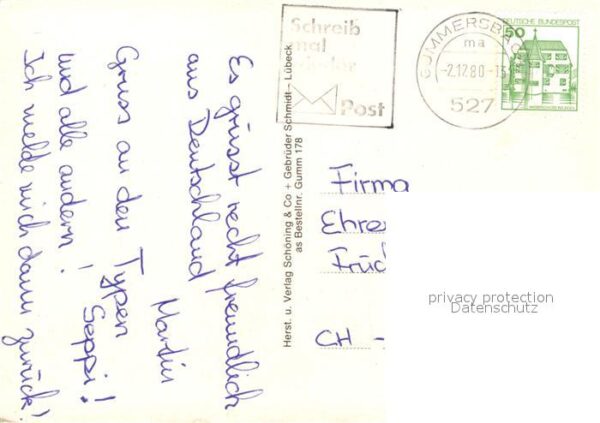 Es grüsst recht freundlich
aus Deutschland
Martin
Gruss an den Typen
Seppi!
und alle andern!
Ich melde mich dann zurück!
Herst. u. Verlag Schöning & Co + Gebrüder Schmidt – Lübeck
as Bestellnr. Gumm 178
Schreib
mal
wieder
Post
GUMMERSBACH
ma
-2.12.80-13
527
DEUTSCHE BUNDESPOST
50
Firma
Ehre
Früc
CH -
privacy protection
Datenschutz